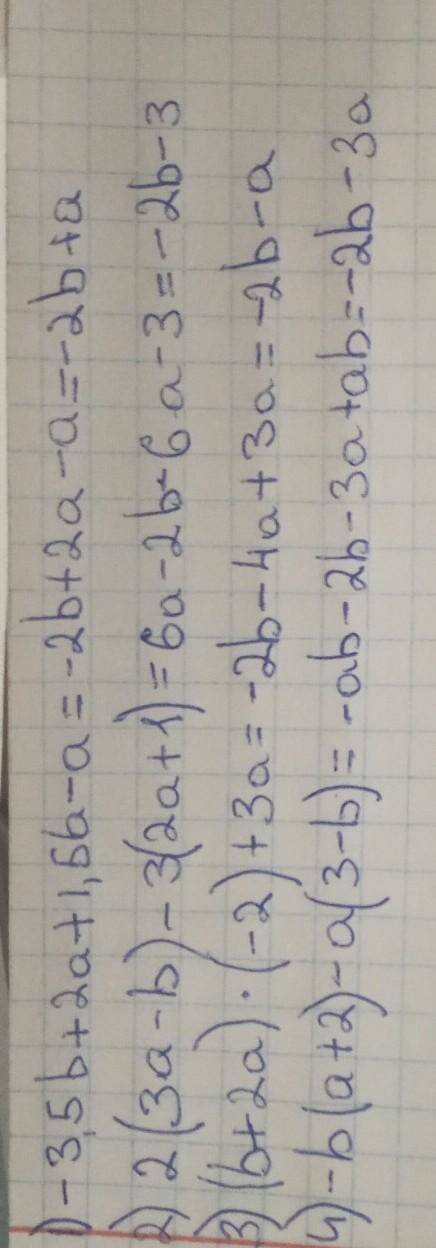 1) -3,5b+2a+1,5b-a=-2b+2a-a=-2b+a
2) 2(3a-b)-3(2a+1)=6a-2b-6a-3=-2b-3
3) (b+2a)·(-2)+3a=-2b-4a+3a=-2b-a
4) -b(a+2)-a(3-b)=-ab-2b-3a+ab=-2b-3a